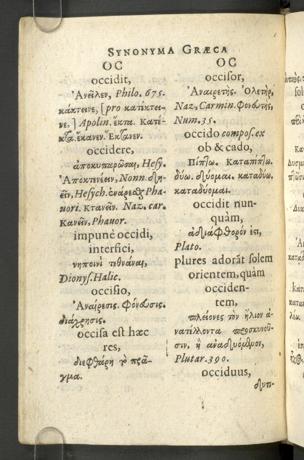 SYNONYMA GRÆCA
OC
occidit,
Ἀνεῖλεν, Philo. 675.
κάκτεινε, [pro κατέκτει-
νε.] Apolin. ἔκτα. Κατέ-
κτα. ἔκανεν. Ἔκτανεν.
occidere,
Hesy.
Ἀποκτενέειν, Nonn.
Hesych. Pha-
uori. κτανεῖν. Naz. car.
Κανεῖν, Phauor.
impunè occidi,
interfici,
νηποινὶ τεθνάναι,
Dionys. Halic.
occisio,
Ἀναίρεσις. Φόνευσις.
διάχρησις.
occisa est hæc
res,
διεφθάρη τὸ πρᾶ-
γμα.
OC
occisor,
Ἀναιρέτης. Ὀλετὴρ,
Naz, Carmin. Φονευτὴς,
Num. 35.
occido compos. ex
ob & cado,
Πίπτω. Καταπίπτω.
δύω. δύομαι. καταδύω.
καταδύομαι.
occidit nun-
quàm,
ἀδιάφθορόν ἐστι,
Plato.
plures adorāt solem
orientem, quàm
occiden-
tem,
πλείονες τὸν ἥλιον ἀ-
νατέλλοντα προσκυνοῦ-
σιν, ἢ
Plutar. 390.
occiduus,
δυτι-